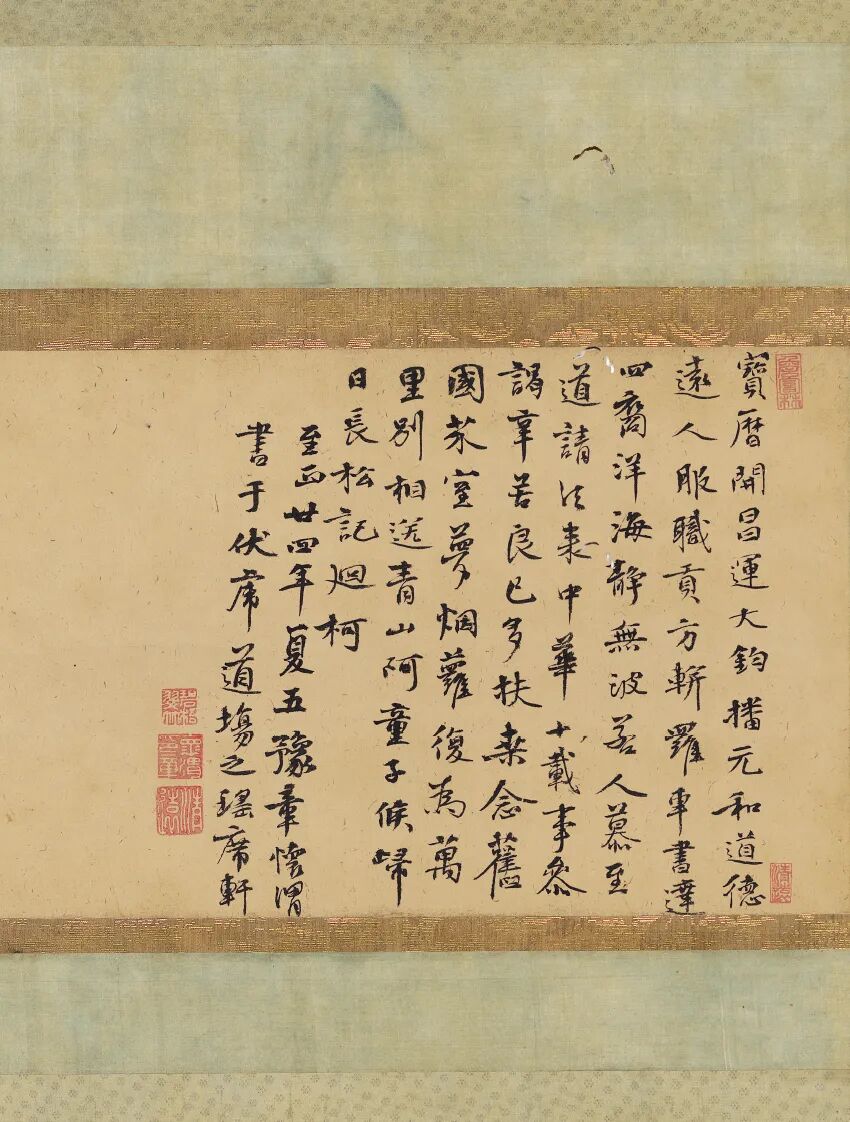 寶曆開昌運大鈞播元和道德
遠人服職貢方駢羅車書達
四裔洋海靜無波若人慕至
道請法來中華十載事參
謁辛苦良已多扶桑念舊
國茅室夢烟蘿復為萬
里別相送青山阿童子候歸
日長松記迴柯
至正廿四年夏五豫章懷渭
書于伏虎道場之瑤席軒
清遠